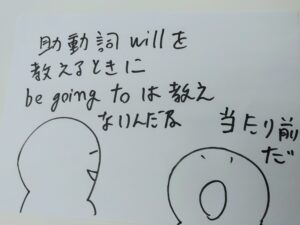 助動詞willを
教えるときに
be going toは教え
ないんだな
当たり前
だ